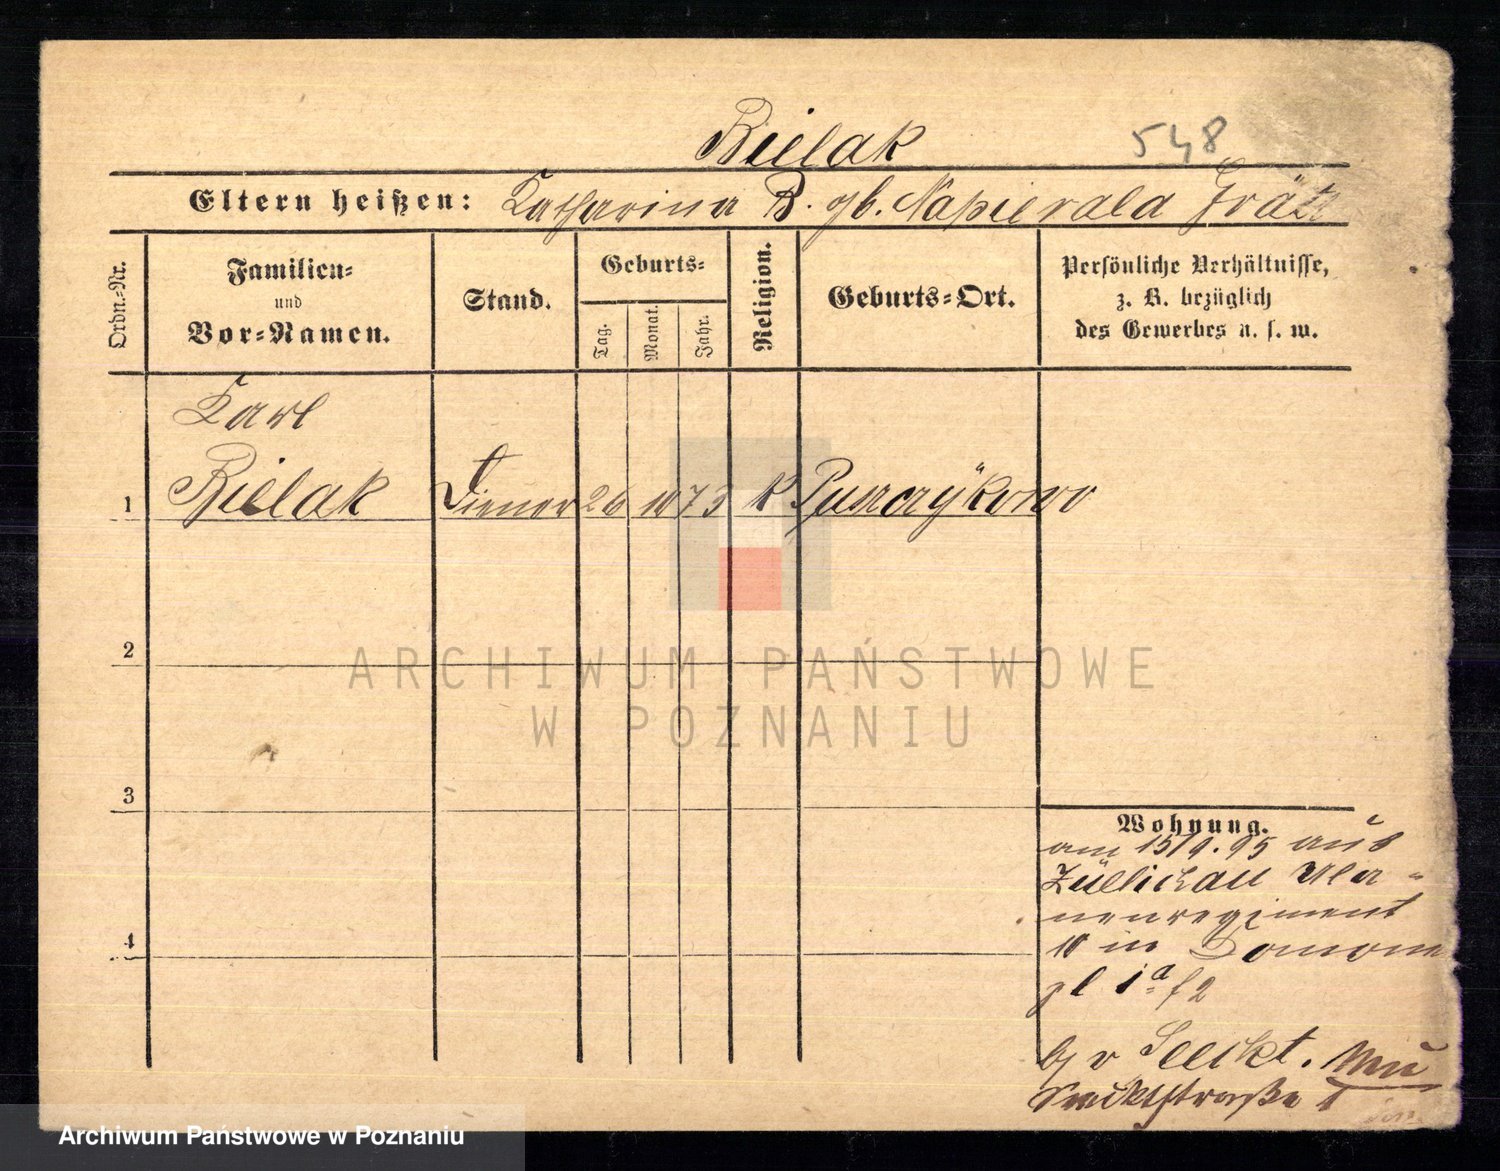 Bielak 548
Eltern heißen: Katharina B. gb. Napierala Grätz
Ordn.-Nr.
Familien-
und
Vor-Namen.
Stand.
Geburts-
Tag.
Monat.
Jahr.
Religion.
Geburts-Ort.
Persönliche Verhältnisse,
z. B. bezüglich
des Gewerbes u. s. w.
Karl
1 Bielak Diener 26 10 73 k Puszczykowo
2
3
4
Wohnung.
am 15/9. 95 aus
Züllichau Ula-
nenregiment
10 in
pl 1a f 2
b/ v Seeckt.
ARCHIWUM PAŃSTWOWE
W POZNANIU
Archiwum Państwowe w Poznaniu